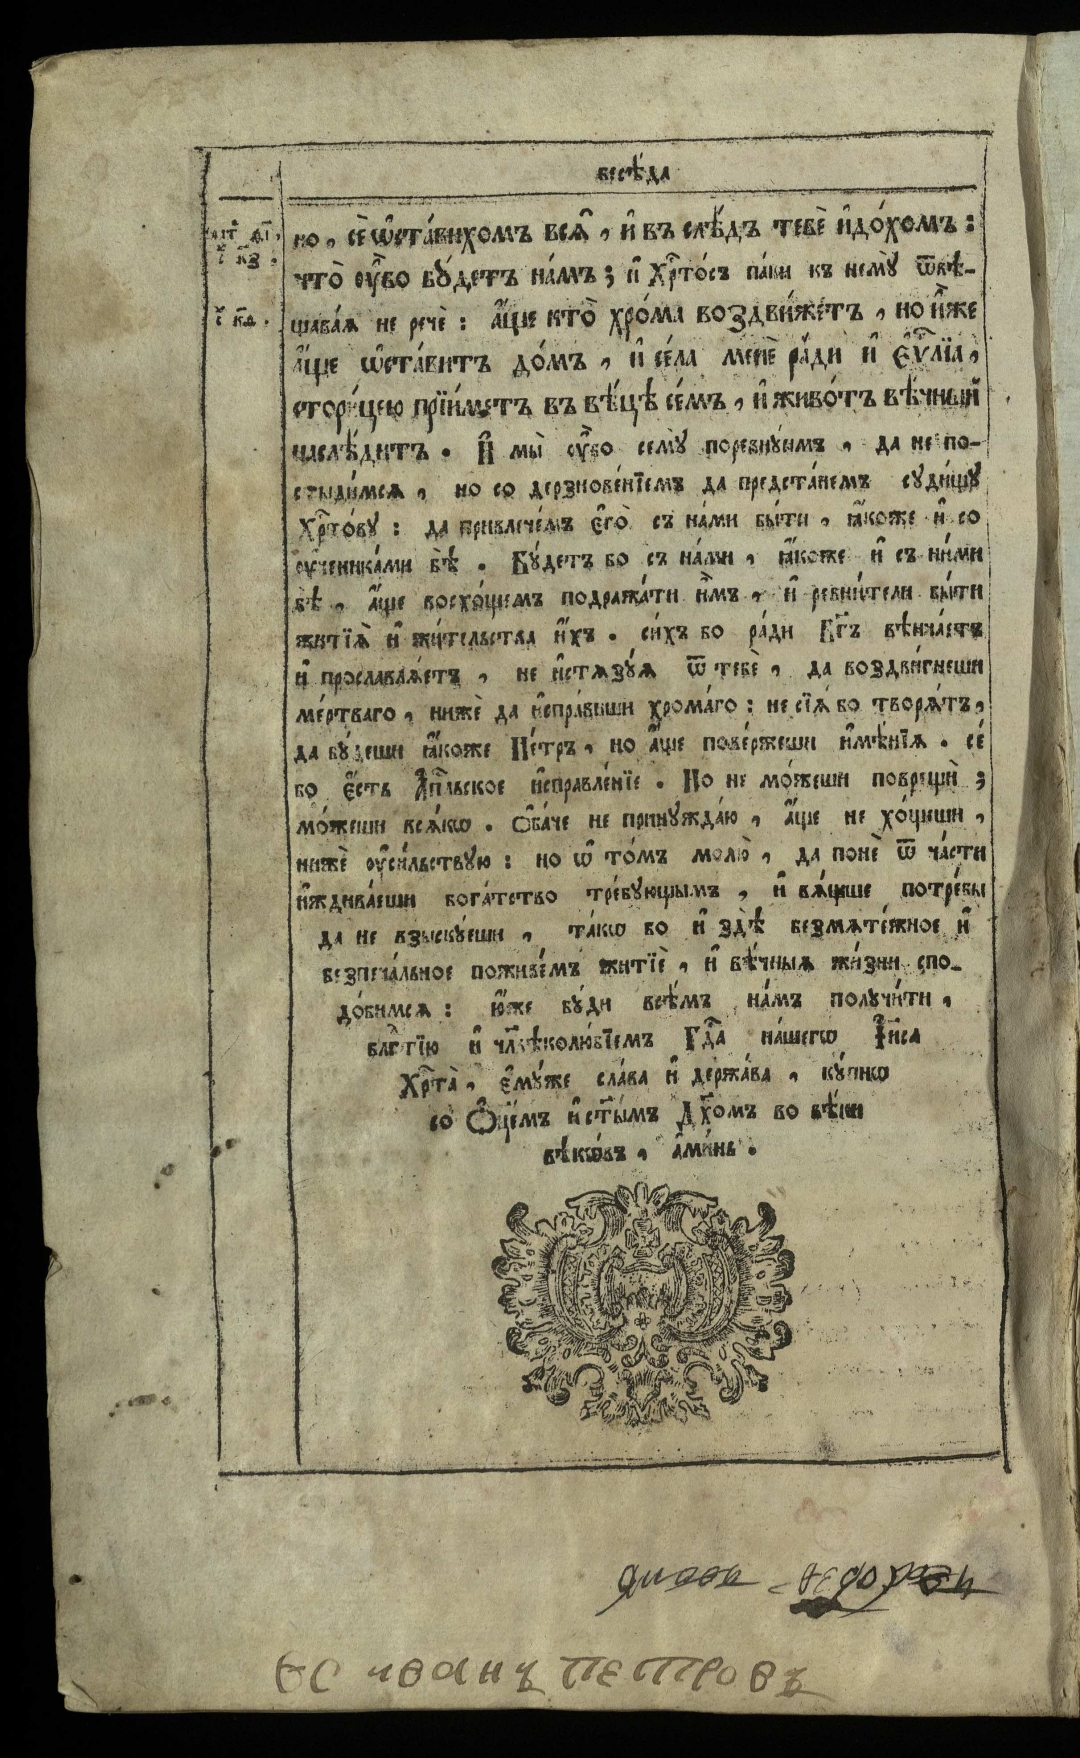 бесѣ́да
но , сѐ ѡ҆ста́вихомъ всѧ̑ , и҆ въ слѣ́дъ тебѐ и҆до́хомъ :
что̀ ᲂу҆̀бо бꙋ́детъ на́мъ ; и҆ Хрⷭ҇то́съ па́ки къ немꙋ̀ ѿвѣ-
щава́ѧ не речѐ : а҆́ще кто̀ хро́ма воздви́жетъ , но и҆́же
а҆́ще ѡ҆ста́витъ до́мъ , и҆ се́ла менѐ ра́ди и҆ є҆ѵⷢ҇лїа ,
стори́цею прїи́метъ въ вѣ́цѣ се́мъ , и҆ живо́тъ вѣ́чный
наслѣ́дитъ . И҆ мы̀ ᲂу҆̀бо семꙋ̀ поревнꙋ́имъ , да не по-
стыди́мсѧ , но со дерзнове́нїемъ да предста́немъ сꙋди́щꙋ
Хрⷭ҇то́вꙋ : да привлече́мъ є҆го̀ съ на́ми бы́ти , ꙗ҆́коже и҆ со
ᲂу҆ченика́ми бѣ̀ . Бꙋ́детъ бо съ на́ми , ꙗ҆́коже и҆ съ ни́ми
бѣ̀ , а҆́ще восхо́щемъ подража́ти и҆̀мъ , и҆ ревни́тели бы́ти
житїѧ̀ и҆ жи́тельства и҆́хъ . си́хъ бо ра́ди Бг҃ъ вѣнча́етъ
и҆ прославлѧ́етъ , не и҆стѧзꙋ́ѧ ѿ тебѐ , да воздви́гнеши
ме́ртваго , нижѐ да и҆спра́виши хрома́го : не сїѧ́ бо творѧ́тъ ,
да бꙋ́деши ꙗ҆́коже Пе́тръ , но а҆́ще пове́ржеши и҆мѣ́нїѧ . се́
бо є҆́сть а҆пⷭ҇льское и҆справле́нїе . Но не мо́жеши поврещѝ ;
мо́жеши всѧ́кѡ . Ѻ҆ба́че не принꙋжда́ю , а҆́ще не хо́щеши ,
нижѐ ᲂу҆си́льствꙋю : но ѡ҆ то́мъ молю̀ , да понѐ ѿ ча́сти
и҆ждива́еши бога́тство тре́бꙋющымъ , и҆ вѧ́щше потре́бы
да не взыскꙋ́еши , та́кѡ бо и҆ здѣ̀ безмѧте́жное и҆
безпеча́льное поживе́мъ житїѐ , и҆ вѣ́чныѧ жи́зни спо-
до́бимсѧ : ю҆́же бꙋ́ди всѣ́мъ на́мъ полꙋчи́ти ,
блгⷣтїю и҆ чл҃вѣколю́бїемъ Гдⷭ҇а на́шегѡ І҆и҃са
Хрⷭ҇та̀ , є҆мꙋ́же сла́ва и҆ держа́ва , кꙋ́пнѡ
со Ѻ҆ц҃е́мъ и҆ ст҃ы́мъ Дх҃омъ во вѣ́ки
вѣкѡ́въ , а҆ми́нь .
иванъ петровъ